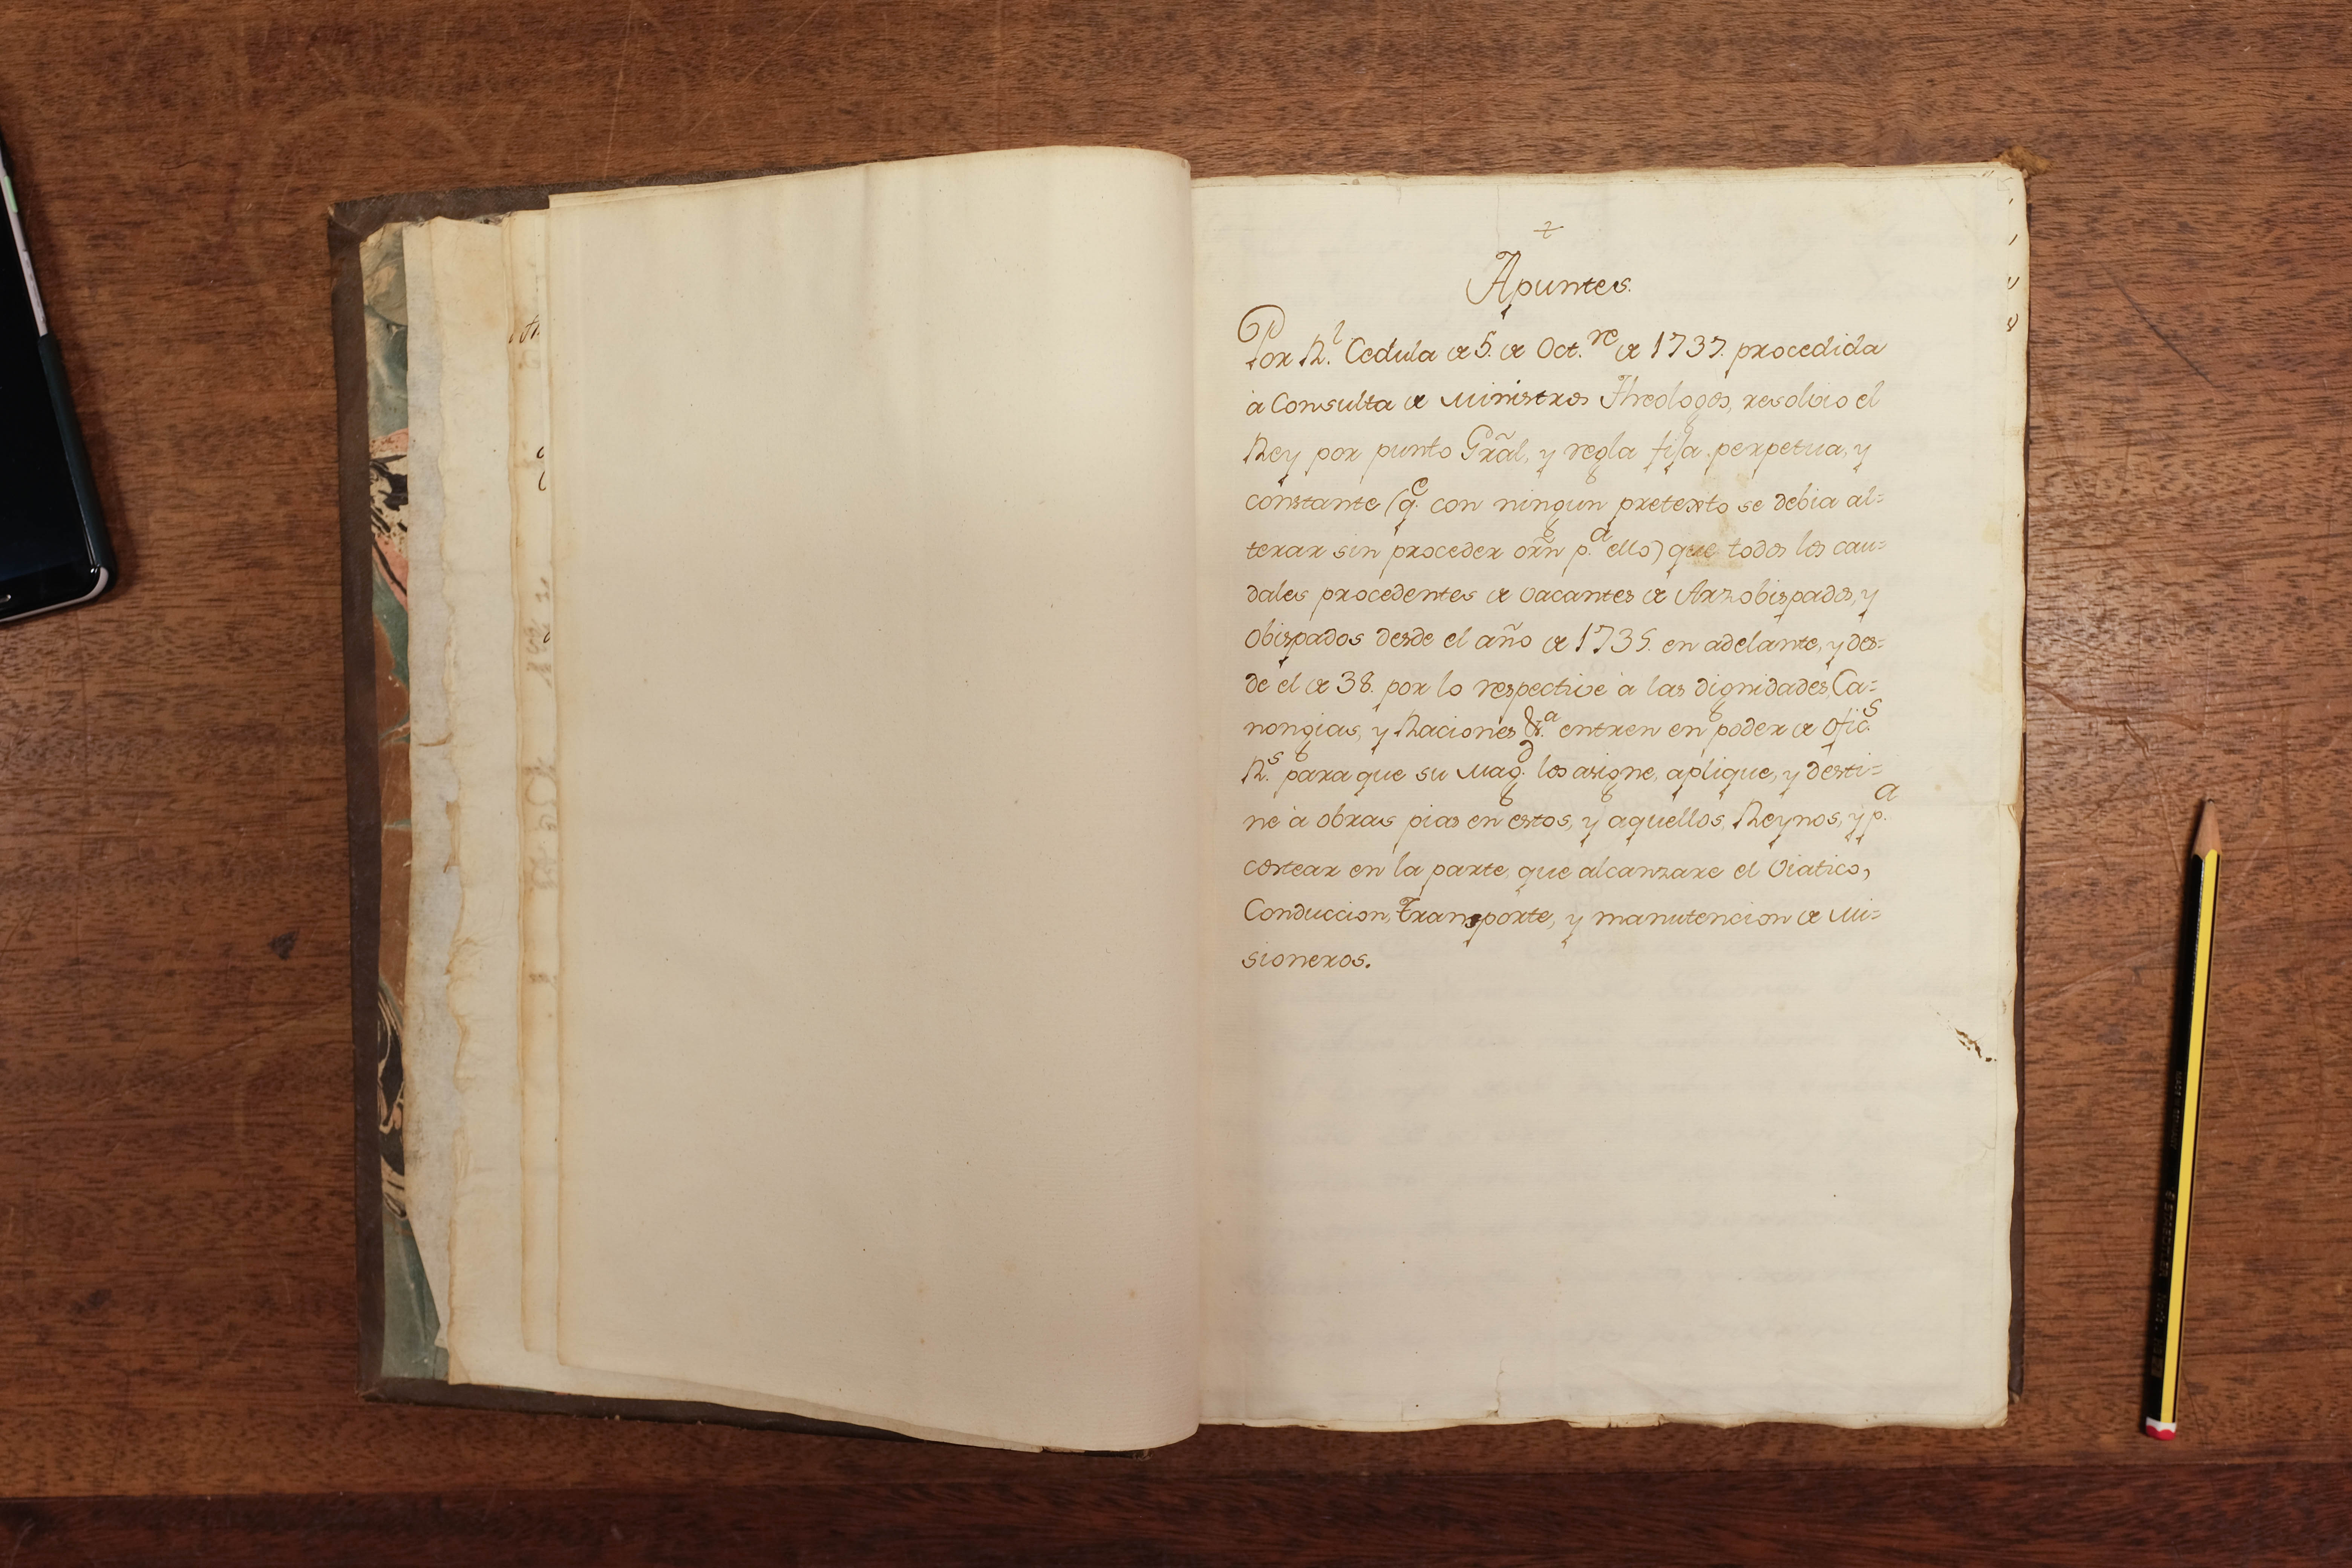 Apuntes.
Por R.^l Cedula de 5. de Oct.^re de 1737. procedida
à Consulta de Ministros Theologos, resolvio el
Rey por punto Grãl, y regla fija, perpetua, y
constante (q.^e con ningun pretexto se debia al=
terar sin proceder orñ p.^a ello) que todos los cau=
dales procedentes de vacantes de Arzobispados, y
Obispados desde el año de 1735. en adelante, y des=
de el de 38. por lo respective à las dignidades, Ca=
nongias, y Raciones &.^a entren en poder de Ofic.^s
R.^s para que su Mag.^d los asigne, aplique, y desti=
ne à obras pias en estos, y aquellos Reynos, y p.^a
costear en la parte que alcanzare el Viatico,
Conduccion, transporte, y manutencion de Mi=
sioneros.